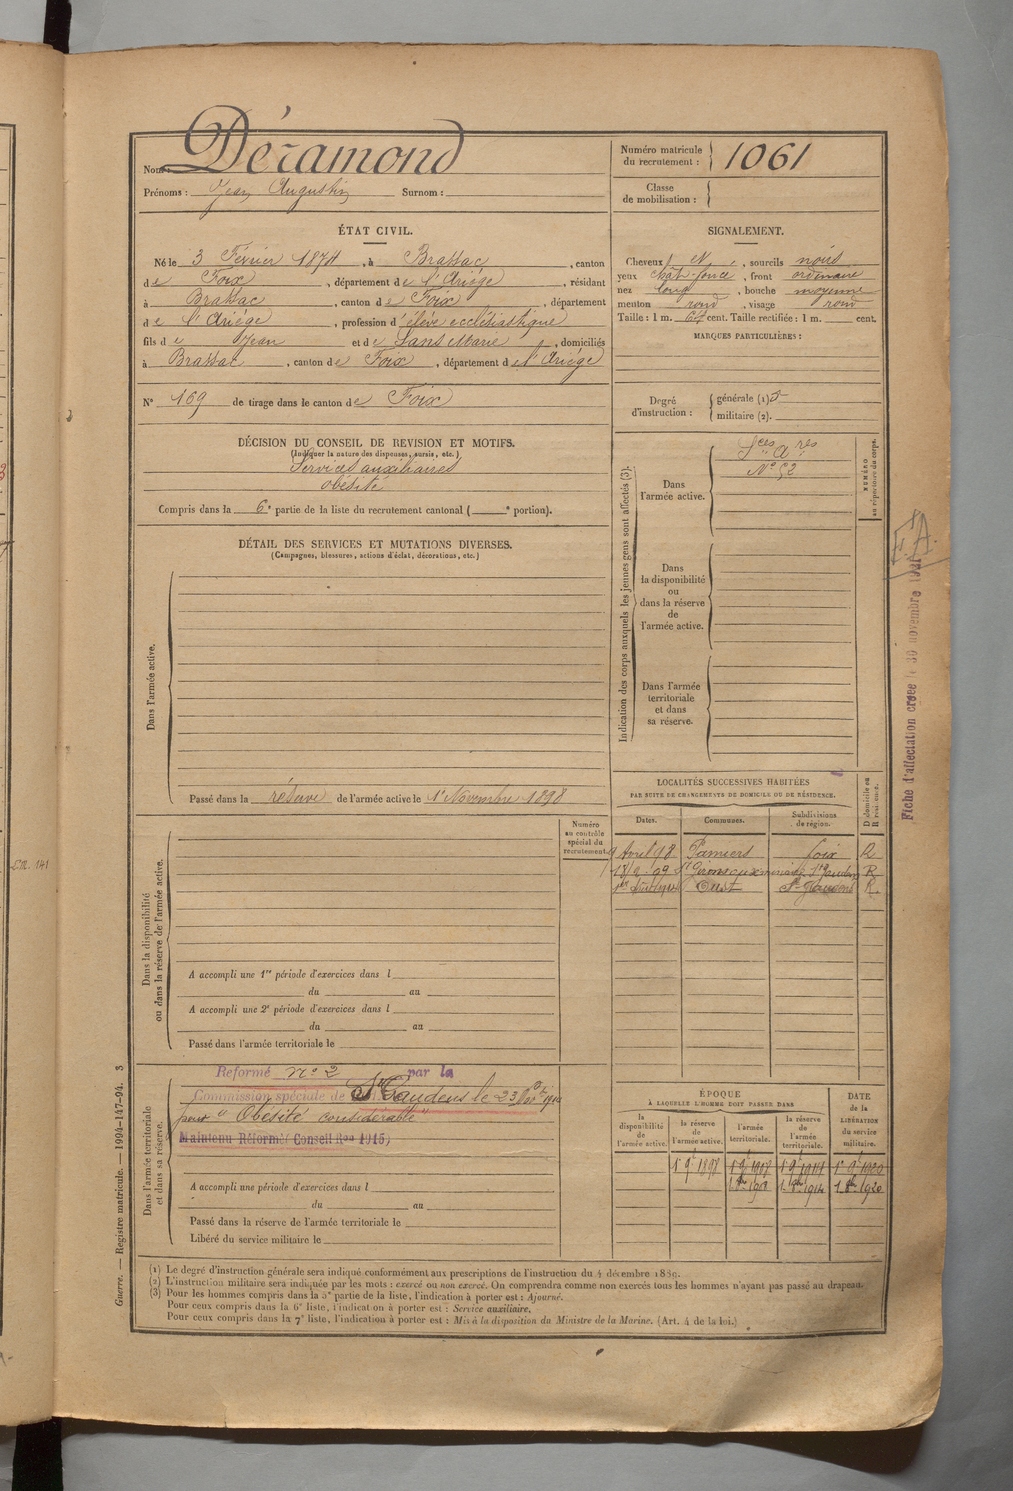 Nom : Déramond
Prénoms : Jean Augustin Surnom :
Numéro matricule
du recrutement : 1061
Classe
de mobilisation :
ÉTAT CIVIL.
Né le 3 Février 1874, à Brassac, canton
de Foix, département de l'Ariège, résidant
à Brassac, canton de Foix, département
de l'Ariége, profession d'élève ecclésiastique
fils de Jean et de Sans Marie, domiciliés
à Brassac, canton de Foix, département de l'Ariége
N° 169 de tirage dans le canton de Foix
SIGNALEMENT.
Cheveux N., sourcils noirs
yeux chât-foncé, front ordinaire
nez long, bouche moyenne
menton rond, visage rond
Taille : 1 m. 64 cent. Taille rectifiée : 1 m. cent.
MARQUES PARTICULIÈRES :
Degré
d'instruction :
générale (1) 3
militaire (2).
DÉCISION DU CONSEIL DE REVISION ET MOTIFS.
(Indiquer la nature des dispenses, sursis, etc.)
Services auxiliaires
obésité
Compris dans la 6e partie de la liste du recrutement cantonal ( e portion).
DÉTAIL DES SERVICES ET MUTATIONS DIVERSES.
(Campagnes, blessures, actions d'éclat, décorations, etc.)
Dans l'armée active.
Passé dans la réserve de l'armée active le 1er Novembre 1898
Indication des corps auxquels les jeunes gens sont affectés (3).
NUMÉRO
au répertoire du corps.
Dans
l'armée active.
Sces Ares
N° 52
Dans
la disponibilité
ou
dans la réserve
de
l'armée active.
Dans l'armée
territoriale
et dans
sa réserve.
LOCALITÉS SUCCESSIVES HABITÉES
PAR SUITE DE CHANGEMENTS DE DOMICILE OU DE RÉSIDENCE.
Dates. Communes. Subdivisions
de région.
D domicile ou
R résidence.
Avril 98 Pamiers Foix R
Oust St Gaudens R.
Numéro
au contrôle
spécial du
recrutement.
Dans la disponibilité
ou dans la réserve de l'armée active.
A accompli une 1re période d'exercices dans l
du au
A accompli une 2e période d'exercices dans l
du au
Passé dans l'armée territoriale le
Dans l'armée territoriale
et dans sa réserve.
Réformé n° 2 par la
Commission spéciale de St Gaudens le 23
pour "Obésité considérable"
Maintenu Réformé (Conseil Ron 1915)
A accompli une période d'exercices dans l
du au
Passé dans la réserve de l'armée territoriale le
Libéré du service militaire le
ÉPOQUE
À LAQUELLE L'HOMME DOIT PASSER DANS
la
disponibilité
de
l'armée active.
la réserve
de
l'armée active.
l'armée
territoriale.
la réserve
de
l'armée
territoriale.
DATE
de la
LIBÉRATION
du service
militaire.
(1) Le degré d'instruction générale sera indiqué conformément aux prescriptions de l'instruction du 4 décembre 1889.
(2) L'instruction militaire sera indiquée par les mots : exercé ou non exercé. On comprendra comme non exercés tous les hommes n'ayant pas passé au drapeau.
(3) Pour les hommes compris dans la 5e partie de la liste, l'indication à porter est : Ajourné.
Pour ceux compris dans la 6e liste, l'indication à porter est : Service auxiliaire.
Pour ceux compris dans la 7e liste, l'indication à porter est : Mis à la disposition du Ministre de la Marine. (Art. 4 de la loi.)
Guerre. — Registre matricule. — 1994-147-94. 3
Fiche d'affectation créée le 30 novembre